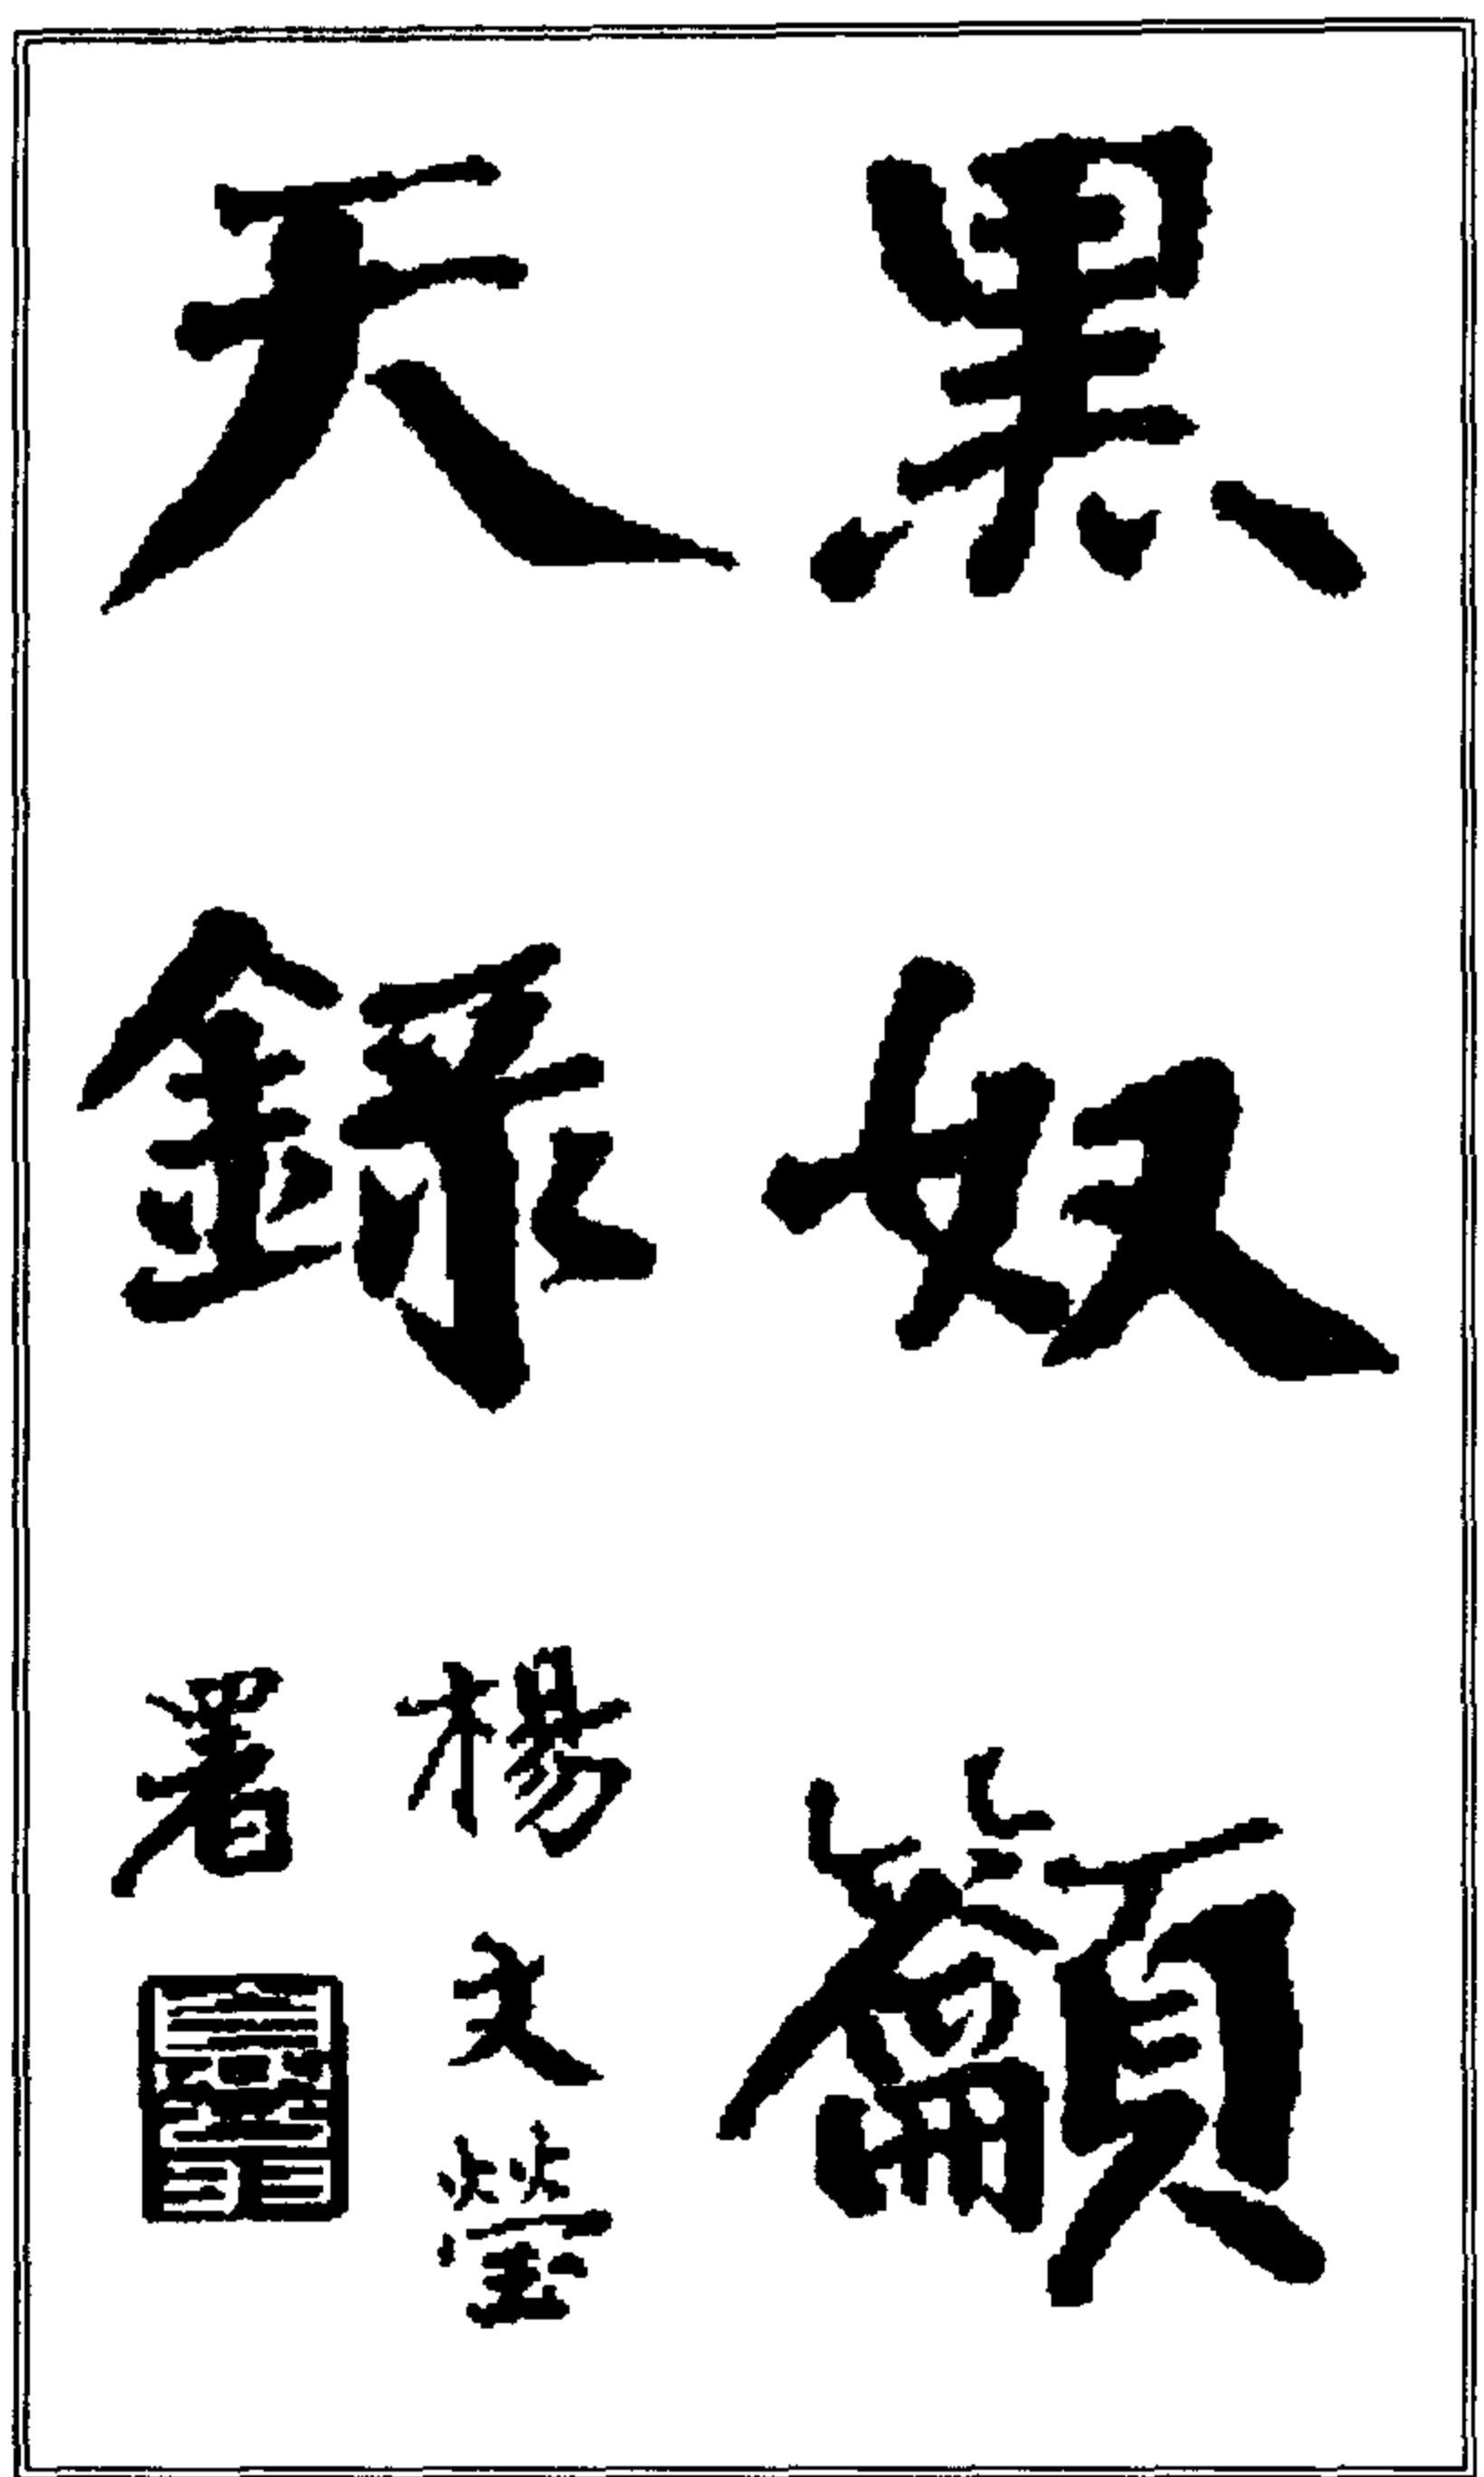 黑奴籲
天錄
楊文瑩
署